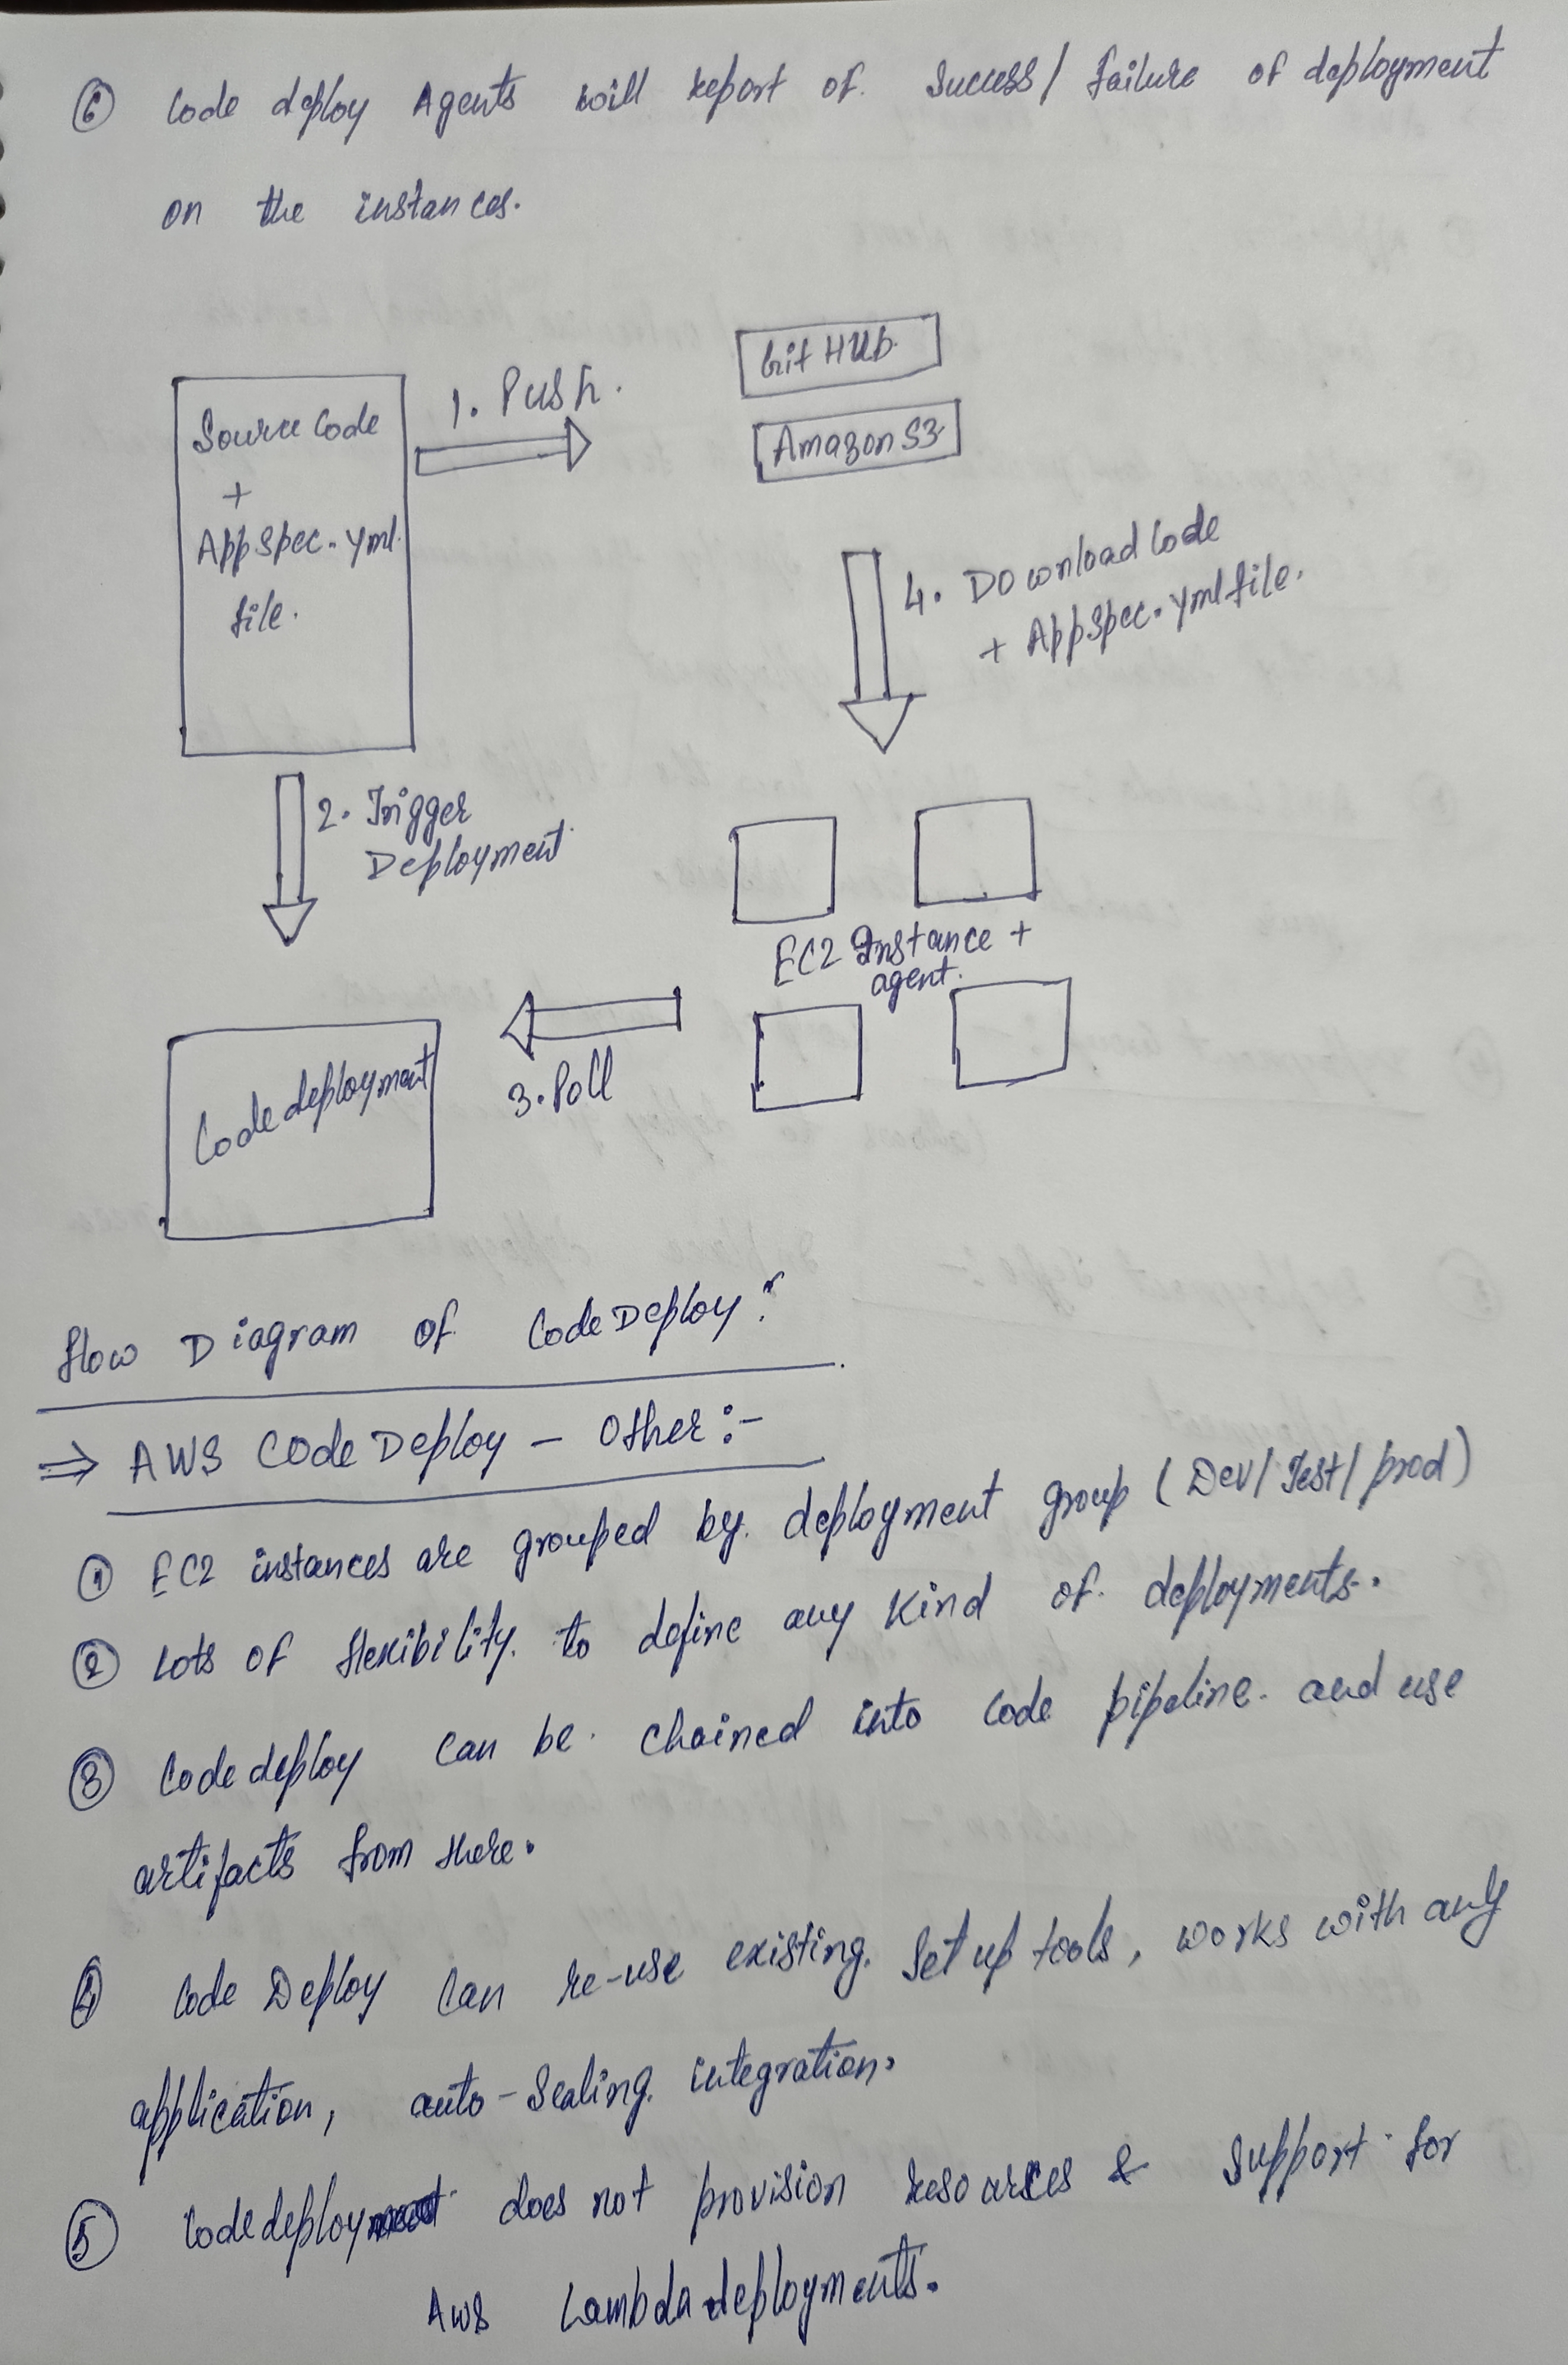 ⑥ Code deploy Agents will report of success/failure of deployment
on the instances.
Source Code
+
AppSpec.yml
file.
1. Push.
Git HUb
Amazon S3
4. Download Code
+ AppSpec.yml file.
2. Trigger
Deployment
EC2 Instance +
agent.
3. Poll
Code deployment
Flow Diagram of CodeDeploy:
⇒ AWS CodeDeploy - Other:-
① EC2 instances are grouped by deployment group (Dev/Test/prod)
② Lots of flexibility to define any kind of deployments.
③ Code deploy can be chained into code pipeline and use
artifacts from there.
④ Code Deploy can re-use existing set up tools, works with any
application, auto-scaling integration.
⑤ Code deploy does not provision resources & support for
AWS Lambda deployments.